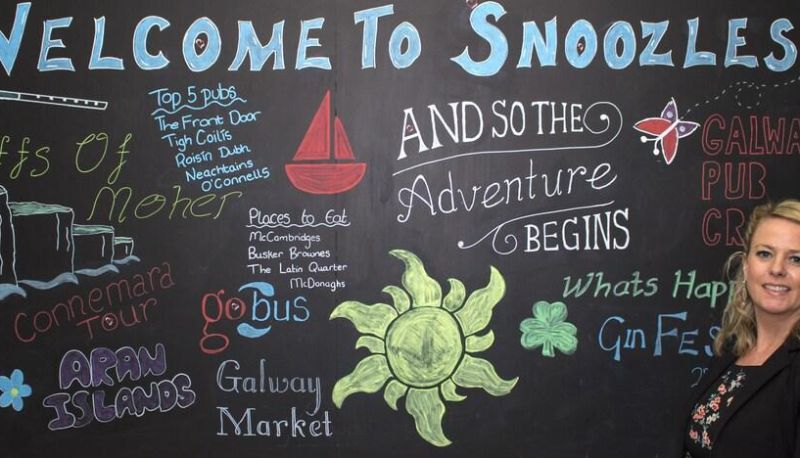 WELCOME TO SNOOZLES
Top 5 pubs
The Front Door
Tigh Coilis
Roisin Dubh
Neachtains
O'Connells
Of
Moher
Places to Eat
McCambridges
Busker Brownes
The Latin Quarter
McDonaghs
AND SO THE
Adventure
BEGINS
PUB
Connemara
Tour
gobus
ARAN
ISLANDS
Galway
Market
Whats
Gin